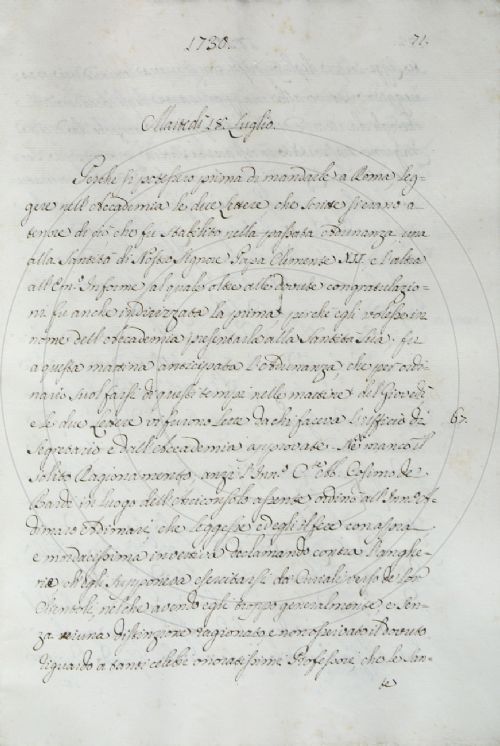 1730.
71.
Martedì 18. Luglio.
Perchè si potessero prima di mandarle a Roma leg-
gere nell'Accademia le due Lettere che scritte si erano a
tenore di ciò che fu stabilito nella passata ordunanza una
alla Santità di Nostro Signore Papa Clemente XII. e l'altra
all'Em.º al quale oltre alle dovute congratulazio-
ni fu anche indirizzata la prima, perchè egli volesse in
nome dell'Accademia presentarla alla Santità Sua. fu
a questa mattina anticipata l'ordunanza, che per ordi-
nario suol farsi di questi tempi nelle mattine del Giovedì
e le due Lettere vi furono lette da chi faceva l'uffizio di
67.
Segretario e dall'Accademia approvate. Nè mancò il
solito Ragionamento, anzi l'Ill.mo Cosimo de
Bardi in luogo dell'Arciconsolo assente ordinò all'Ill.mo A-
dimari, che leggesse ed egli il fece con aspra
e mordacissima invettiva declamando contro l'anghe-
rie ch'egli supponeva esercitarsi da verso de loro
Clientoli, nel che avendo egli troppo generalmente, e sen-
za niuna distinzione ragionato e non osservato il dovuto
riguardo a tanti celebri onoratissimi Professori, che le San-
te